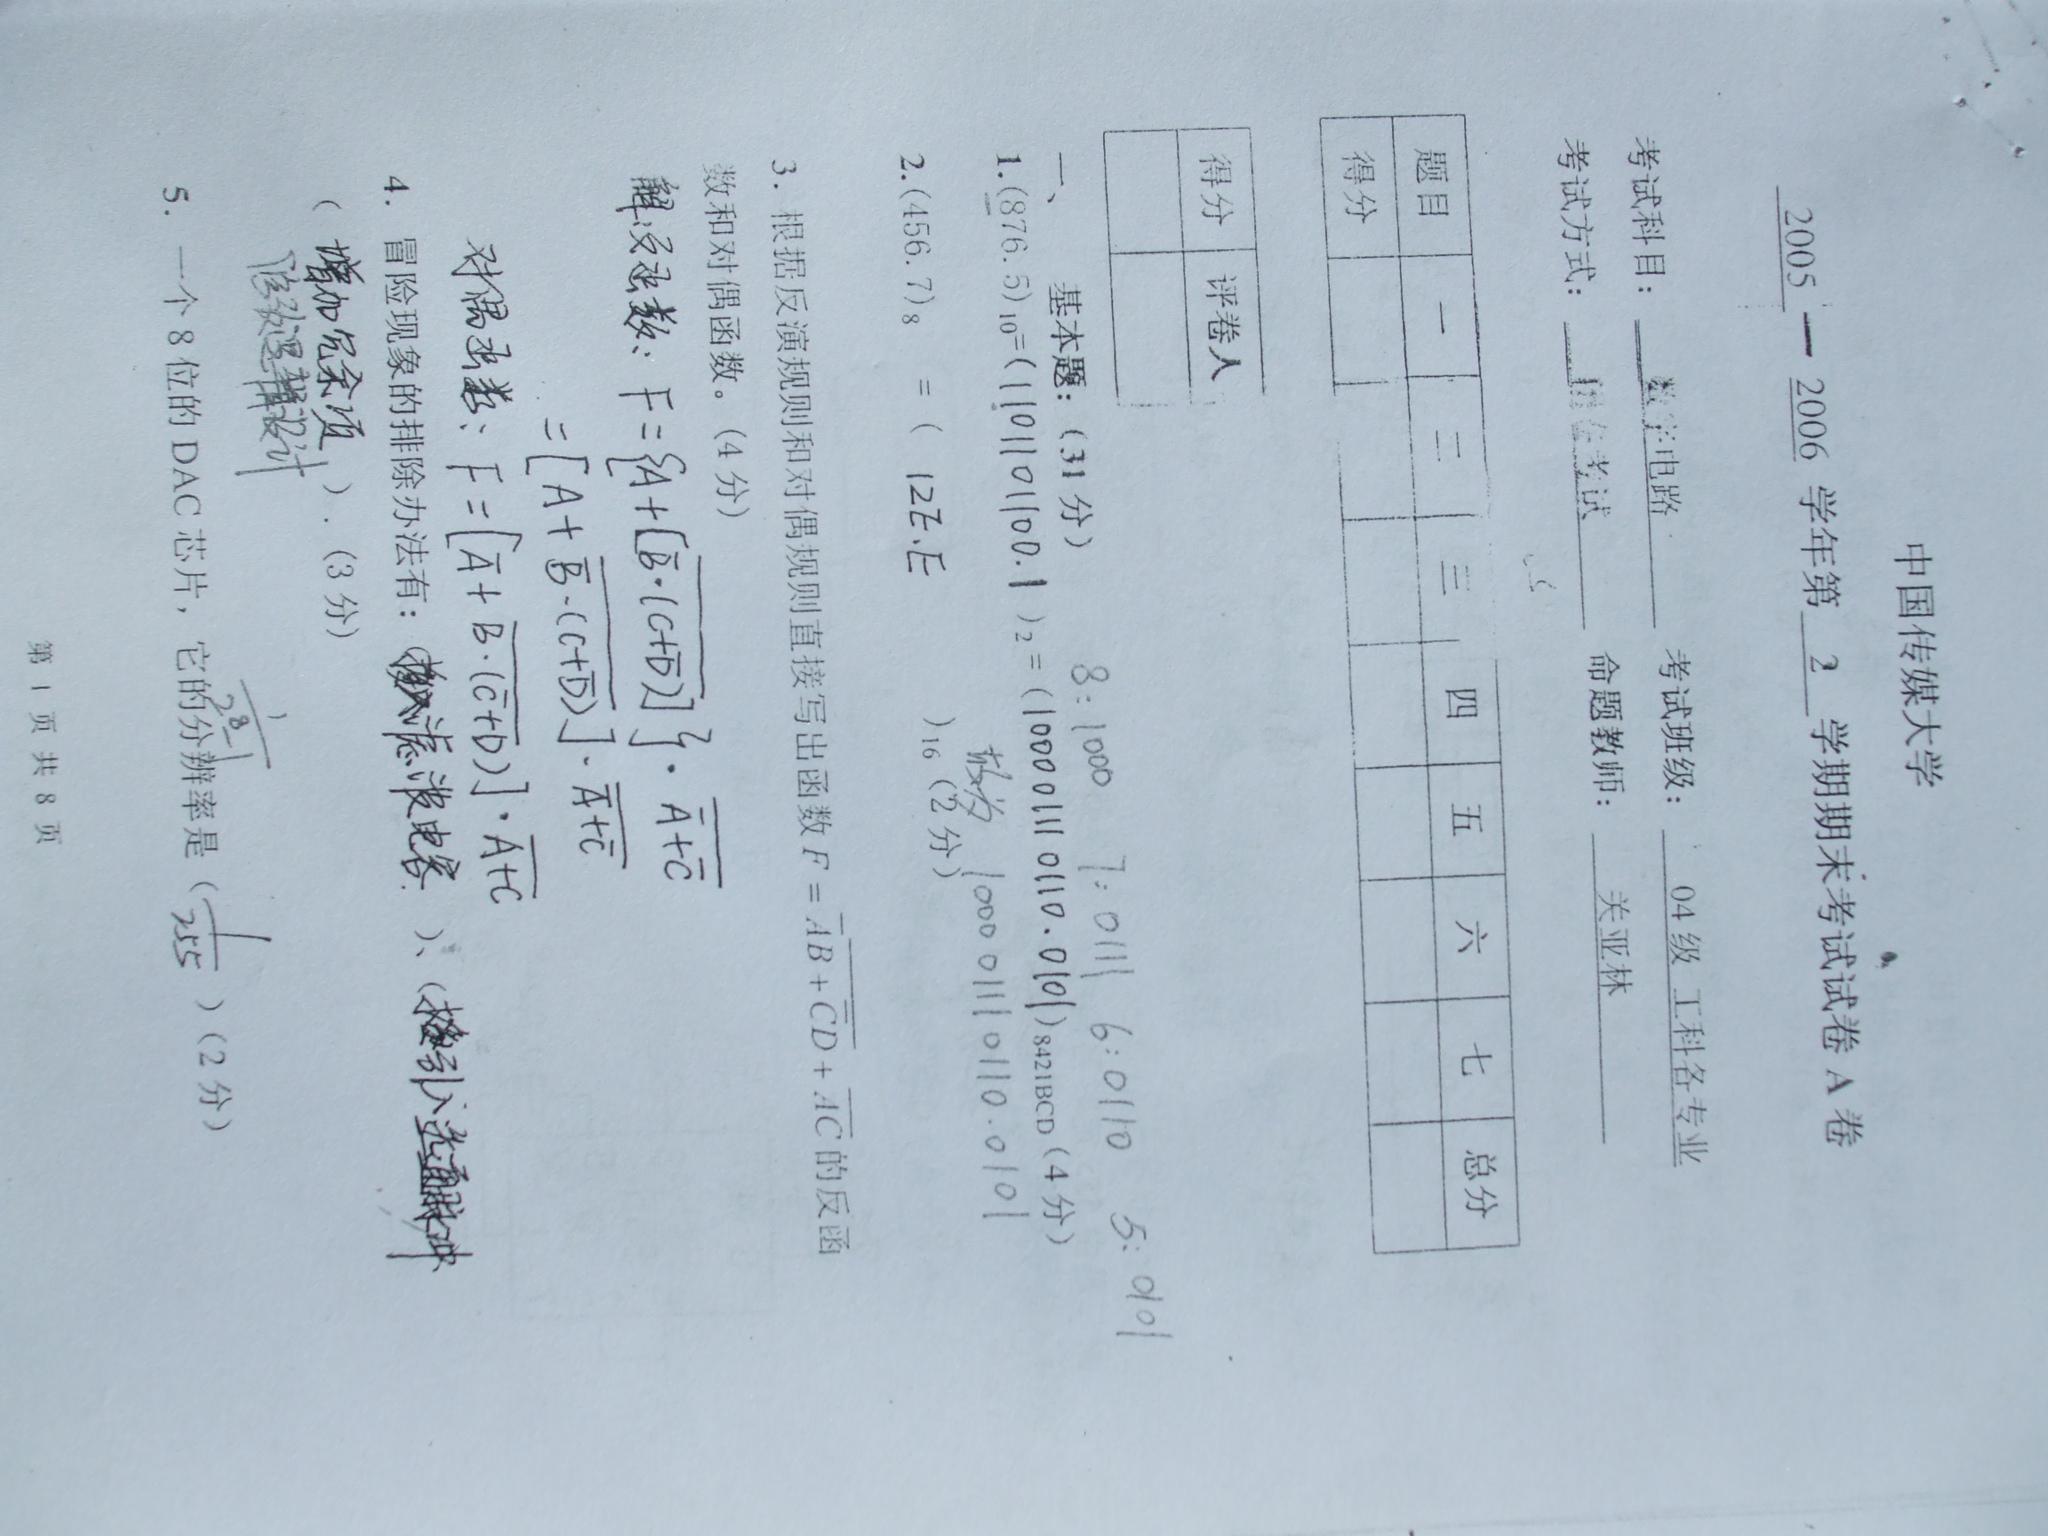 中国传媒大学
2005 — 2006 学年第 2 学期期末考试试卷 A 卷
考试科目： 数字电路 考试班级： 04 级 工科各专业
考试方式： 闭卷考试 命题教师： 关亚林
题目 一 二 三 四 五 六 七 总分
得分
得分 评卷人
8:1000 7:0111 6:0110 5:0101
一、 基本题：（31 分）
1.(876.5)₁₀=(1101101100.1)₂=(100001110110.0101)8421BCD（4 分）
故为 100001110110.0101
2.(456.7)₈ =( 12E.E )₁₆（2 分）
3. 根据反演规则和对偶规则直接写出函数 F = A̅\overline{B+\overline{C}D}+\overline{AC} 的反函
数和对偶函数。（4 分）
解:反函数: F={A+[\overline{\overline{B}·(C+\overline{D})}]}·\overline{\overline{A}+\overline{C}}
=[A+\overline{\overline{B}·(C+\overline{D})}]·\overline{\overline{A}+\overline{C}}
对偶函数: F=[\overline{A}+\overline{B·(\overline{C}+D)}]·\overline{A+C}
4. 冒险现象的排除办法有：（接入滤波电容 ）、（引入选通脉冲
（ 增加冗余项 ）.（3 分）
修改逻辑设计
\frac{1}{2^8-1}
5. 一个 8 位的 DAC 芯片，它的分辨率是（\frac{1}{255}）（2 分）
第 1 页 共 8 页